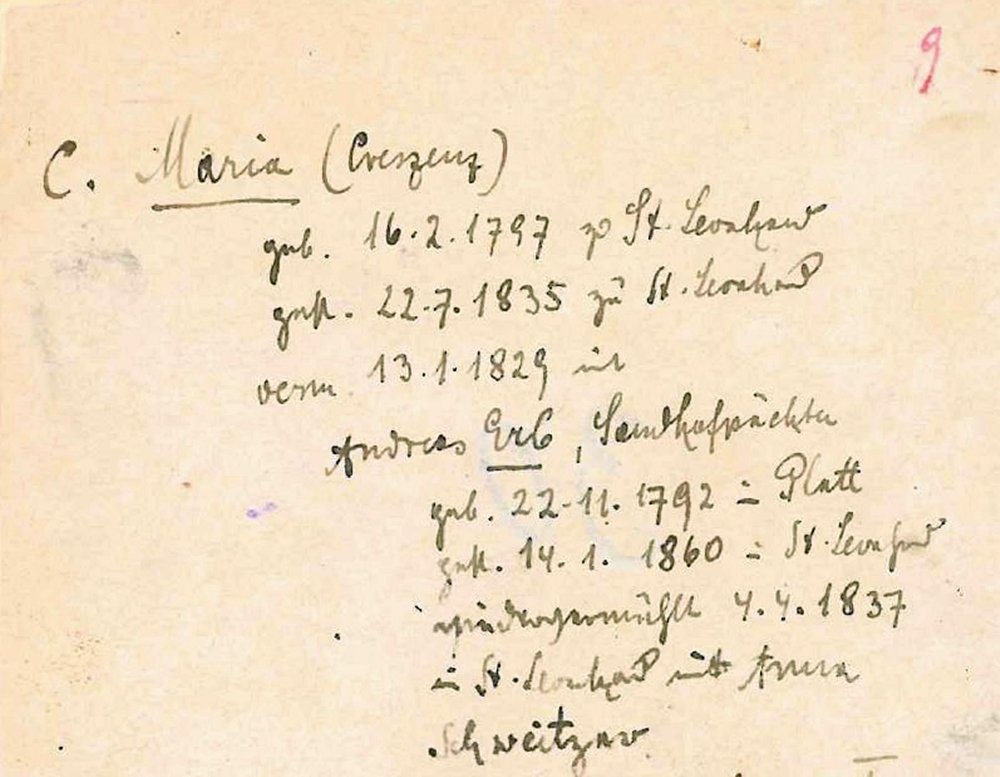 9
C. Maria (Creszenz)
geb. 16.2.1797 zu St. Leonhard
gest. 22.7.1835 zu St. Leonhard
verm 13.1.1829 mit
Andreas Erb, Sandhofpächter
geb. 22.11.1792 in Platt
gest. 14.1.1860 in St. Leonhard
wiedervermählt 4.4.1837
in St. Leonhard mitt Anna
Schweitzer